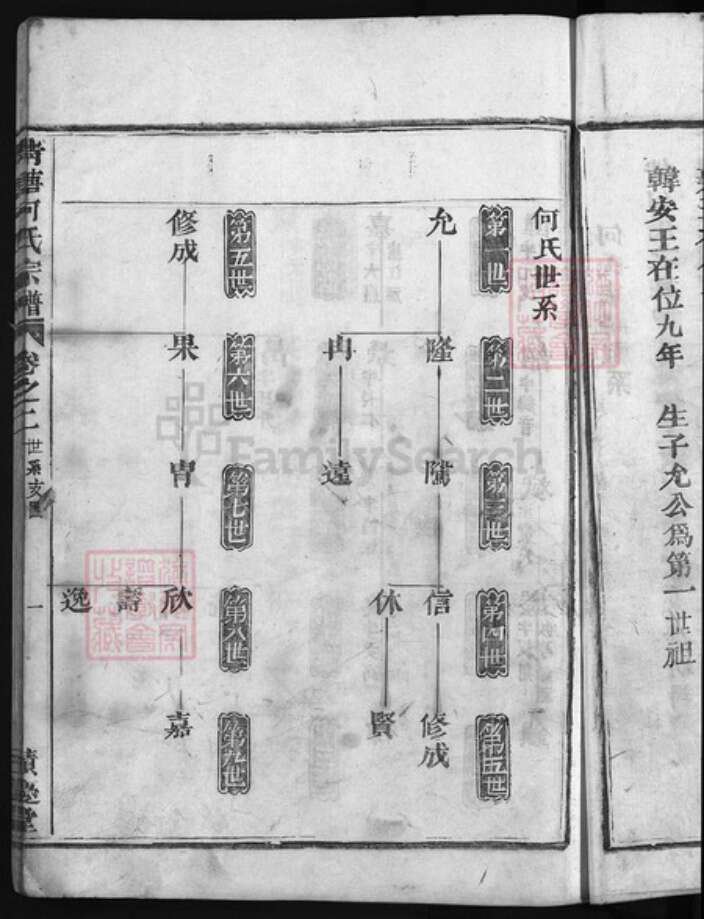 韓安王在位九年 生子允公爲第一世祖
何氏世系
第一世
第二世
第三世
第四世
第五世
允
隆
隲
信
修成
冉
遠
休
賢
第五世
第六世
第七世
第八世
第九世
修成
果
冑
欣
嘉
壽
逸
何氏宗譜
卷之二
世系支圖
一
FamilySearch